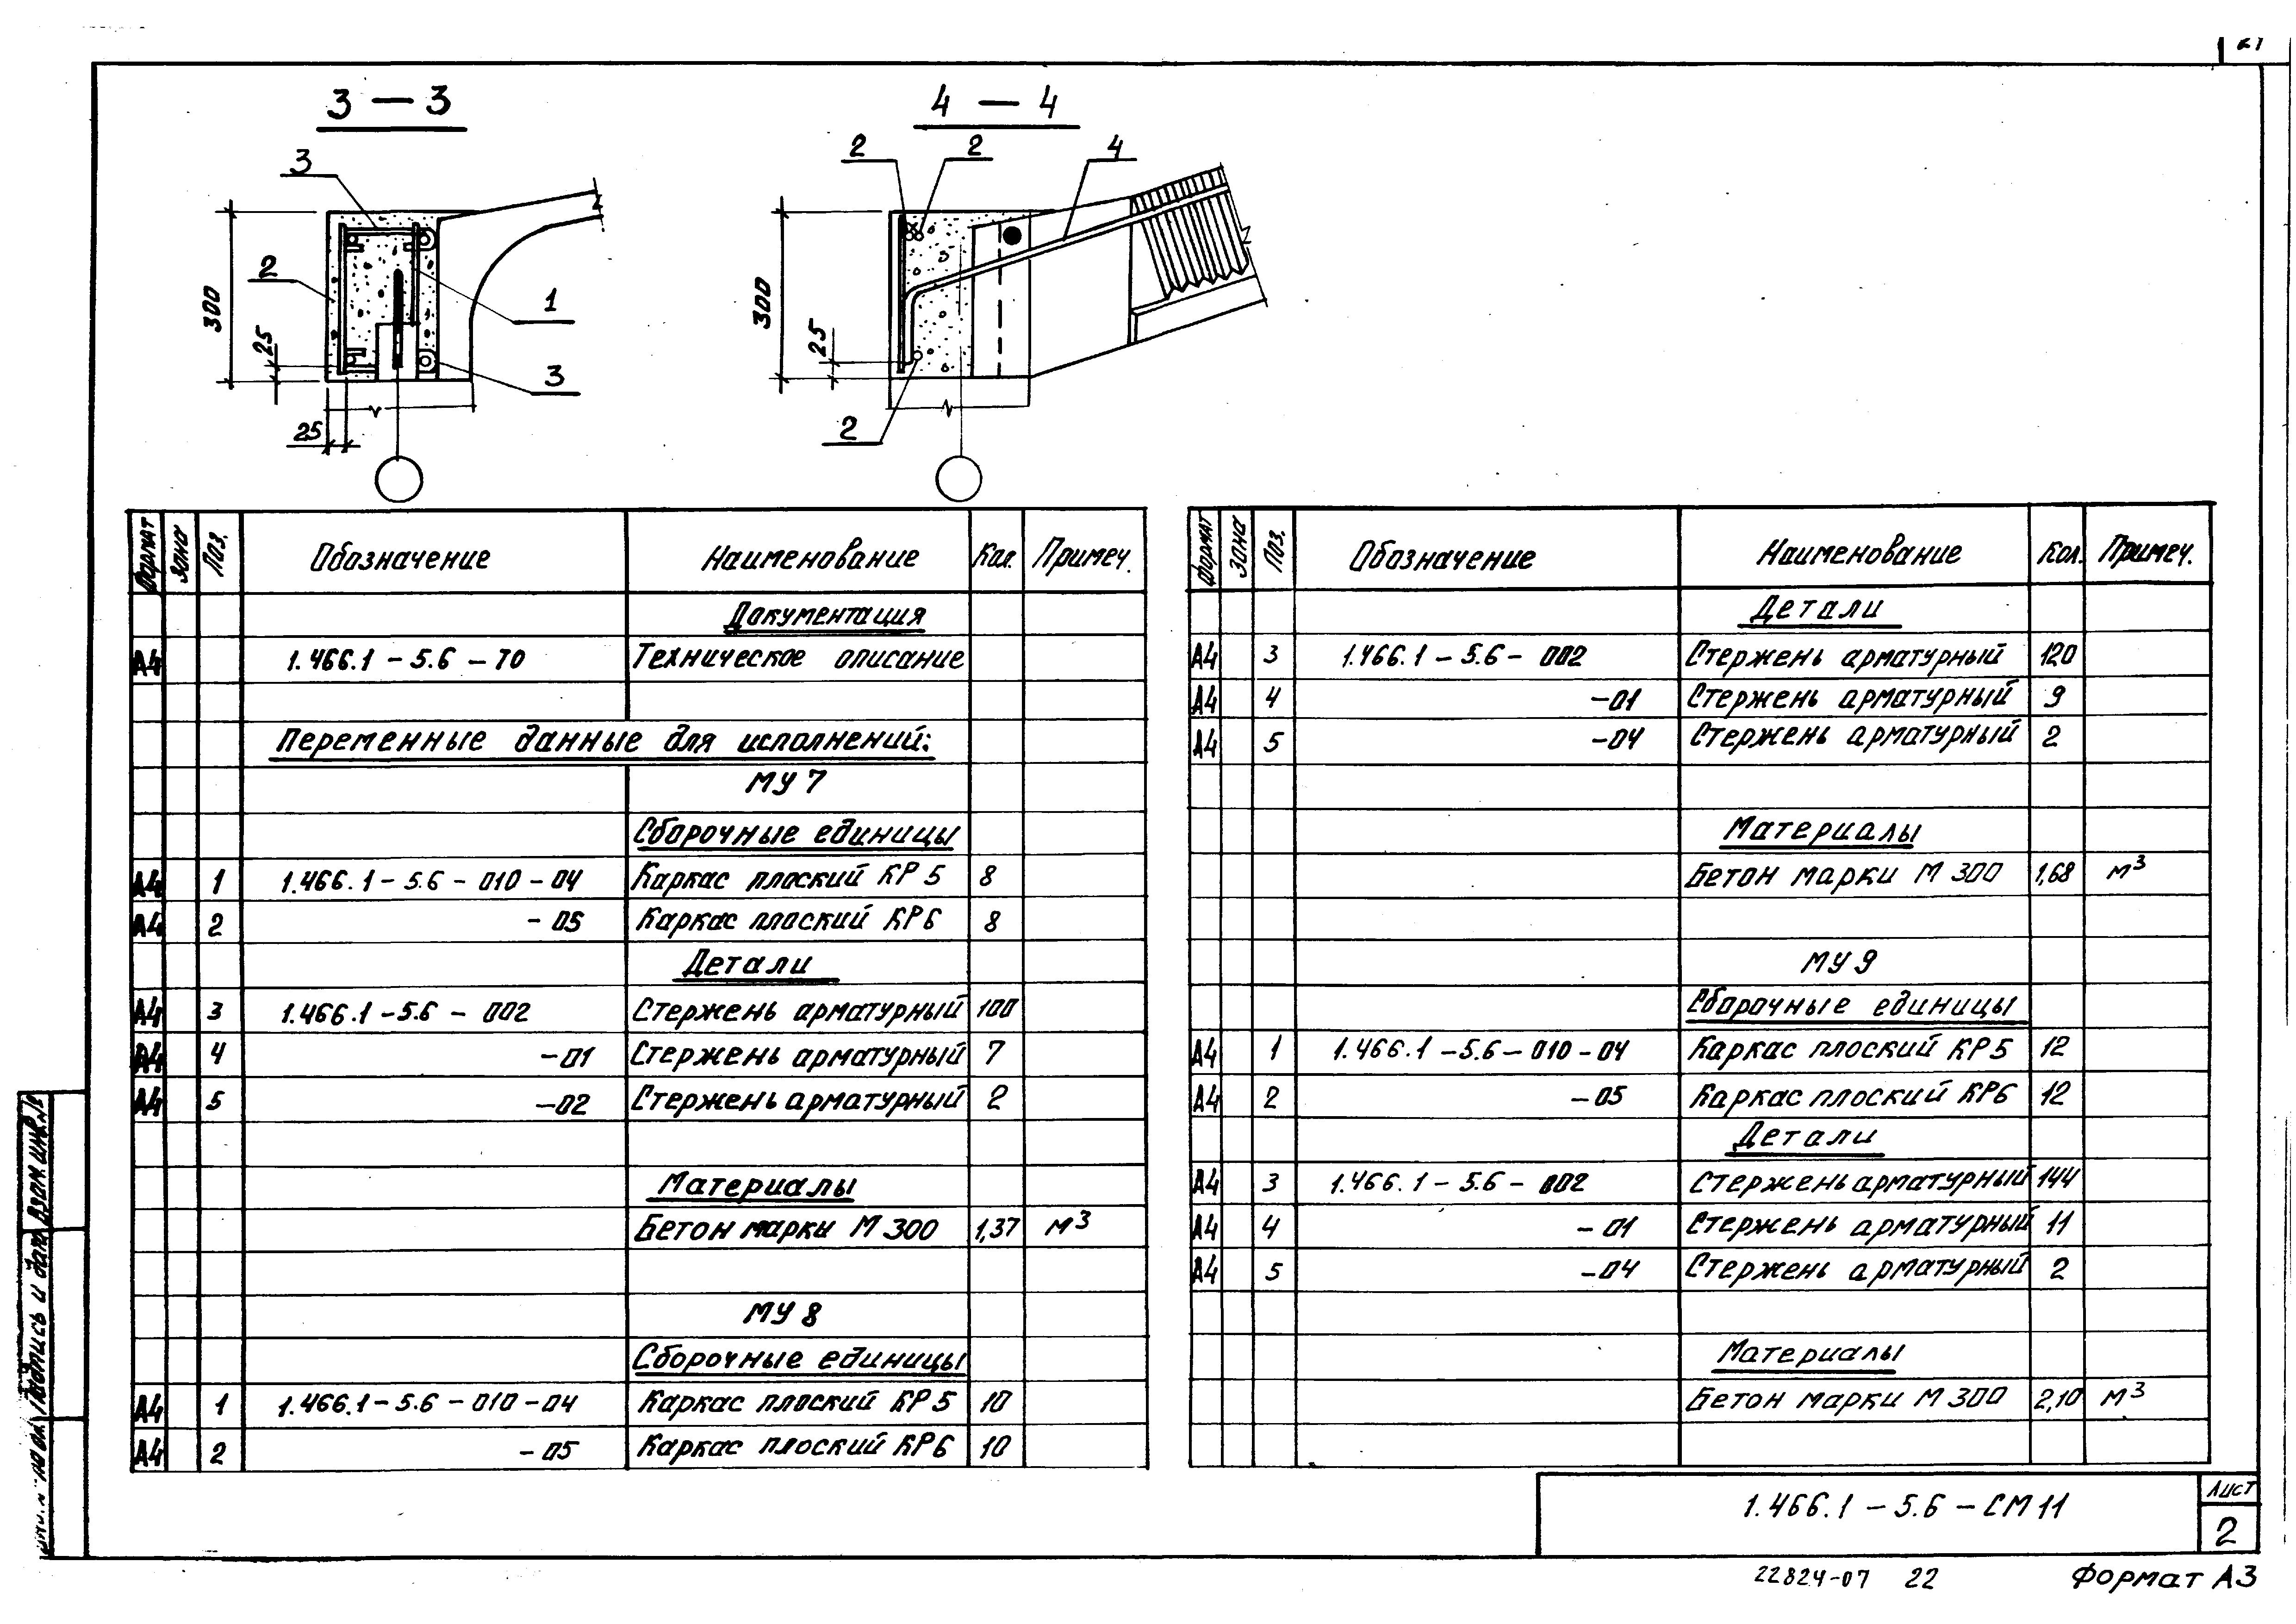 3 — 3
3
2
1
3
300
25
25
4 — 4
2
2
4
300
25
2
Формат Зона Поз. Обозначение Наименование Кол. Примеч.
Документация
А4 1.466.1 – 5.6 – ТО Техническое описание
Переменные данные для исполнений:
МУ 7
Сборочные единицы
А4 1 1.466.1 – 5.6 – 010 – 04 Каркас плоский КР 5 8
А4 2 – 05 Каркас плоский КР6 8
Детали
А4 3 1.466.1 – 5.6 – 002 Стержень арматурный 100
А4 4 –01 Стержень арматурный 7
А4 5 –02 Стержень арматурный 2
Материалы
Бетон марки М 300 1,37 м³
МУ 8
Сборочные единицы
А4 1 1.466.1 – 5.6 – 010 – 04 Каркас плоский КР 5 10
А4 2 – 05 Каркас плоский КР6 10
Формат Зона Поз. Обозначение Наименование Кол. Примеч.
Детали
А4 3 1.466.1 – 5.6 – 002 Стержень арматурный 120
А4 4 –01 Стержень арматурный 9
А4 5 –04 Стержень арматурный 2
Материалы
Бетон марки М 300 1,68 м³
МУ 9
Сборочные единицы
А4 1 1.466.1 – 5.6 – 010 – 04 Каркас плоский КР 5 12
А4 2 – 05 Каркас плоский КР6 12
Детали
А4 3 1.466.1 – 5.6 – 002 Стержень арматурный 144
А4 4 – 01 Стержень арматурный 11
А4 5 – 04 Стержень арматурный 2
Материалы
Бетон марки М 300 2,10 м³
Взам. инв. №
Подпись и дата
1.466.1 – 5.6 – СМ 11
Лист
2
22824-07 22 Формат А3